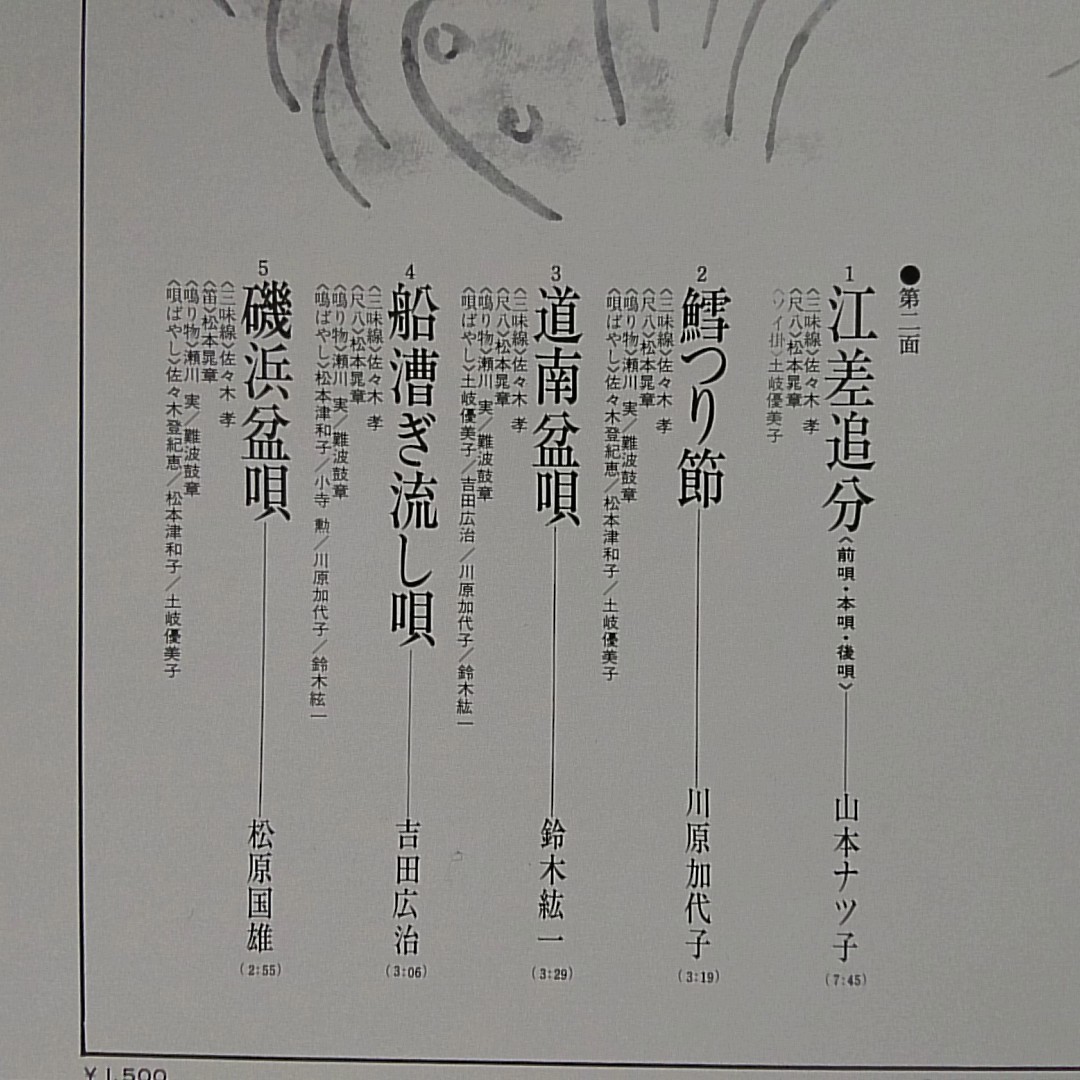 ●第二面
1
江差追分〈前唄・本唄・後唄〉
山本ナツ子
(7:45)
〈三味線〉佐々木 孝
〈尺八〉松本晁章
〈ソイ掛〉土岐優美子
2
鱈つり節
川原加代子
(3:19)
〈三味線〉佐々木 孝
〈尺八〉松本晁章
〈鳴り物〉瀬川 実/難波鼓章
〈唄ばやし〉佐々木登紀恵/松本津和子/土岐優美子
3
道南盆唄
鈴木紘一
(3:29)
〈三味線〉佐々木 孝
〈尺八〉松本晁章
〈鳴り物〉瀬川 実/難波鼓章
〈唄ばやし〉土岐優美子/吉田広治/川原加代子/鈴木紘一
4
船漕ぎ流し唄
吉田広治
(3:06)
〈三味線〉佐々木 孝
〈尺八〉松本晁章
〈鳴り物〉瀬川 実/難波鼓章
〈鳴ばやし〉松本津和子/小寺 勲/川原加代子/鈴木紘一
5
磯浜盆唄
松原国雄
(2:55)
〈三味線〉佐々木 孝
〈笛〉松本晁章
〈鳴り物〉瀬川 実/難波鼓章
〈唄ばやし〉佐々木登紀恵/松本津和子/土岐優美子
¥1,500